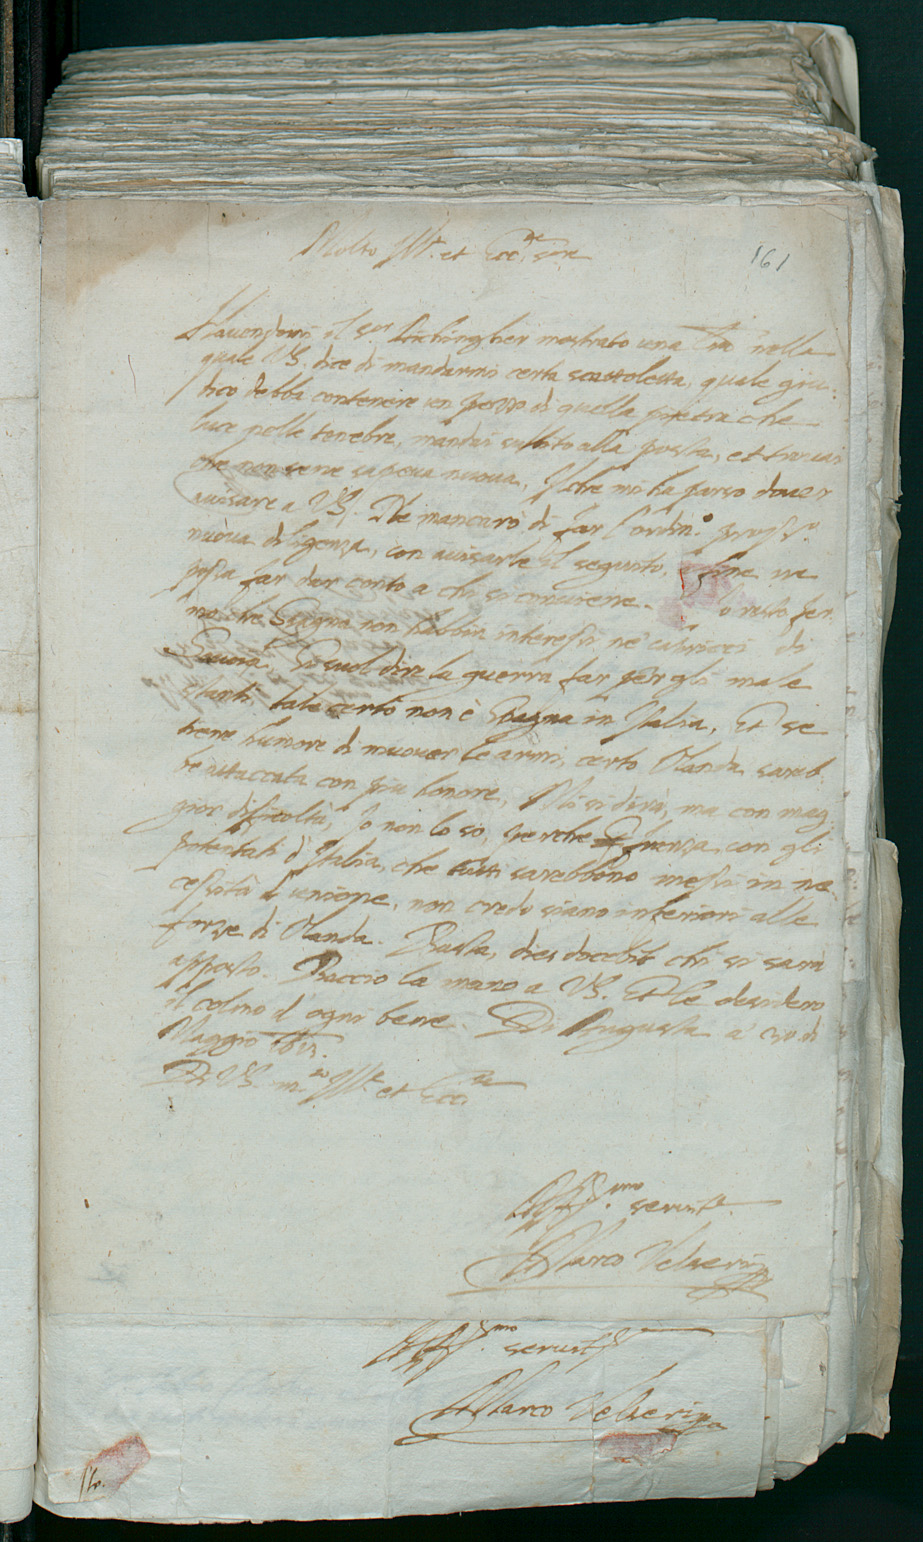 Molto Ill.e et Ecc.te Sre
161
Havendomi il Sor mostrato una lra nella
quale VS. dice di mandarmi certa scattoletta, quale giu-
dico debba contenere un pezzo di quella pietra che
luce nelle tenebre, mandai subbito alla posta, et trovai
che non se ne sapeva nuova, Il che mi ha parso dover
avisare a VS. Ne mancarò di far l'ordin.o pross.o
nuova diligenza, con avisarle il seguito, se ne
possa far dar conto a chi si conviene. Io resto fer-
mo che Spagna non habbia interessi ne capricci di
Si suol dire la guerra far per gli male
stanti. tale certo non è Spagna in Italia, Et se
tiene humore di muover le armi, certo Olanda sareb-
be attaccata con piu honore, Mi si dirà, ma con mag-
gior dificoltà, Io non lo so, perche con gli
potentati d'Italia, che tutti sarebbono messi in ne-
cessità d'unione, non credo siano inferiori alle
forze di Olanda. Basta, dies docebit chi si sarà
apposto. Baccio la mano a VS. Et le desidero
il colmo d'ogni bene. Di Augusta a' di
Maggio 1613.
Di VS. m.to Ill.e et Ecc.te
Aff.mo servit.e
Marco Velseri
Aff.mo servit.e
Marco Velseri